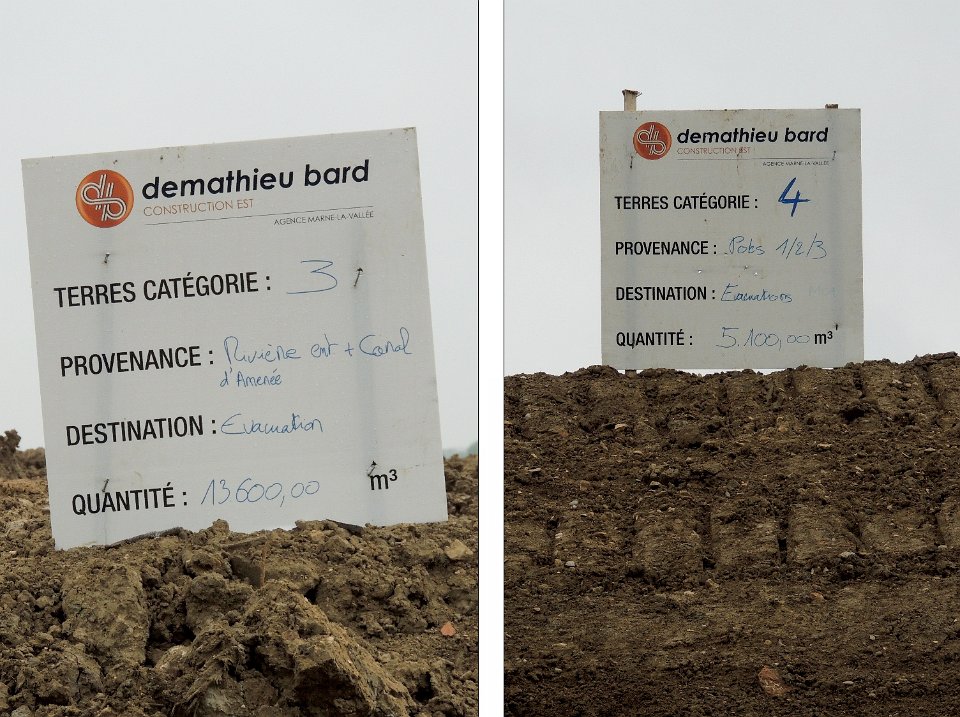 demathieu bard
CONSTRUCTION EST
AGENCE MARNE-LA-VALLÉE
TERRES CATÉGORIE : 3
PROVENANCE : Rivière ent + Canal
d'Amenée
DESTINATION : Evacuation
QUANTITÉ : 13600,00 m³
demathieu bard
CONSTRUCTION EST
AGENCE MARNE-LA-VALLÉE
TERRES CATÉGORIE : 4
PROVENANCE : 1/2/3
DESTINATION : Evacuations
QUANTITÉ : 5.100,00 m³